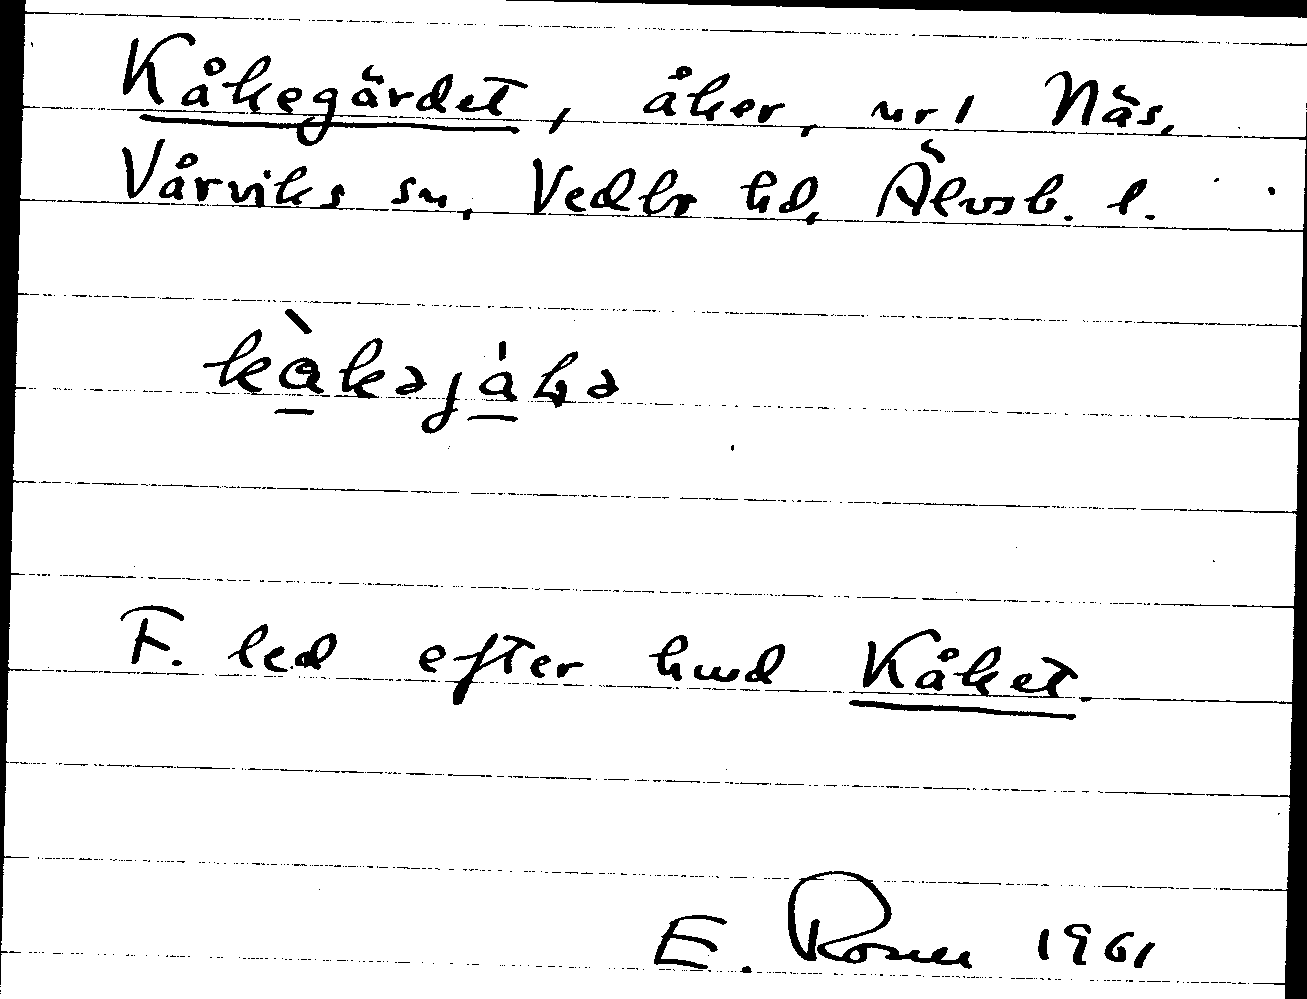 Kåkegärdet, åker, nr 1 Näs,
Vårviks sn, Vedbo hd, Älvsb. l.
F. led efter hmd Kåket.
E. Rosell 1961